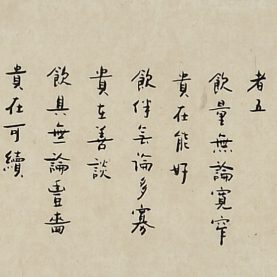 者五
飲量無論寬窄
貴在能好
飲伴無論多寡
貴在善談
飲具無論豐嗇
貴在可續